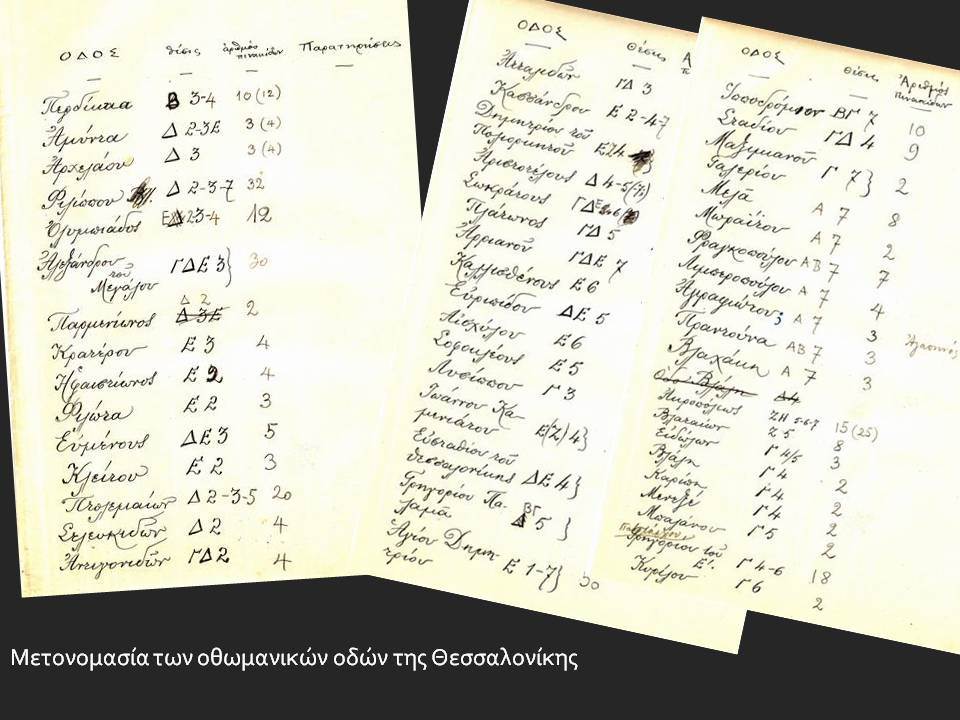 ΟΔΟΣ θέσις ἀριθμός πινακίδων Παρατηρήσεις
Περδίκκα Β 3-4 10 (12)
Ἀμύντα Δ 2-3Ε 3 (4)
Ἀρχελάου Δ 3 3 (4)
Φιλίππου Δ 2-3-7 32
Ὀλυμπιάδος 23-4 12
Ἀλεξάνδρου
τοῦ ΓΔΕ 3} 30
Μεγάλου
Δ 2
Παρμενίωνος Δ 3Ε 2
Κρατέρου Ε 3 4
Ἡφαιστίωνος Ε 2 4
Φιλώτα Ε 2 3
Εὐμένους ΔΕ 3 5
Κλείτου Ε 2 3
Πτολεμαίων Δ 2-3-5 20
Σελευκιδῶν Δ 2 4
Ἀντιγονιδῶν ΓΔ 2 4
ΟΔΟΣ θέσις Α
Ἀτταλιδῶν ΓΔ 3
Κασσάνδρου Ε 2-4-7
Δημητρίου τοῦ
Πολιορκητοῦ Ε24 }
Ἀριστοτέλους Δ 4-5
Σωκράτους ΓΔΕ
Πλάτωνος ΓΔ 5
Ἀρριανοῦ ΓΔΕ 7
Καλλισθένους Ε 6
Εὐριπίδου ΔΕ 5
Αἰσχύλου Ε 6
Σοφοκλέους Ε 5
Λυσίππου Γ 3
Ἰωάννου Κα-
μινιάτου Ε(Ζ) 4}
Εὐσταθίου τοῦ
Θεσσαλονίκης ΔΕ 4}
Γρηγορίου Πα- ΒΓ
λαμᾶ 5 }
Ἁγίου Δημη-
τρίου Ε 1-7} 30
ΟΔΟΣ θέσις Ἀριθμός πινακίδων
Ἱπποδρόμιον ΒΓ 7 10
Σταδίου ΓΔ 4 9
Μαξιμιανοῦ
Γαλερίου Γ 7} 2
Μελᾶ Α 7 8
Μωραΐτου Α 7 2
Φραγκοπούλου ΑΒ 7 7
Λιμπεροπούλου Α 7 4
Ἀγραφιώτου; Α 7 3
Πραντούνα ΑΒ 7 3
Βλαχάκη Α 7 3
Βλάλη Δ4
Ἀκροπόλεως ΖΗ 5-6-7 15 (25)
Βλαταίων Ζ 5 8
Εἰδώλων Γ 4/5 3
Βλάλη Γ 4 2
Καρίπη Γ 4 2
Μενεξέ Γ 4 2
Μπαλάνου Γ 5 2
Πατριάρχου
Γρηγορίου τοῦ
Ε΄. Γ 4-6 18
Κυρίλου Γ 6 2
Μετονομασία των οθωμανικών οδών της Θεσσαλονίκης